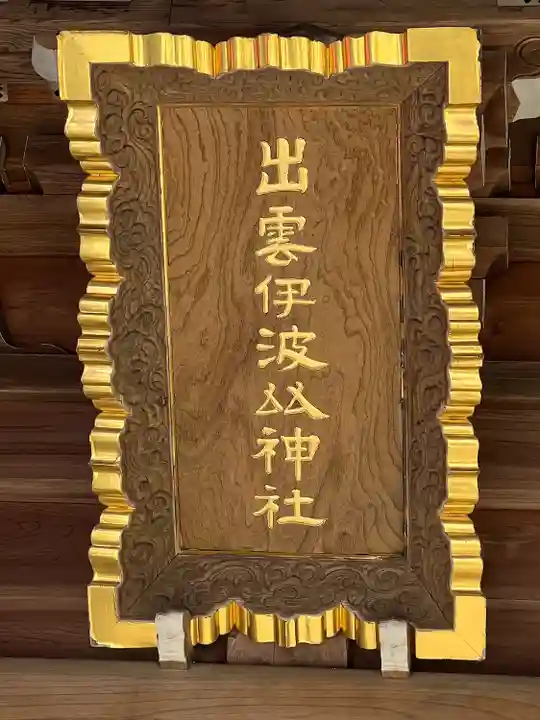 出雲伊波比神社